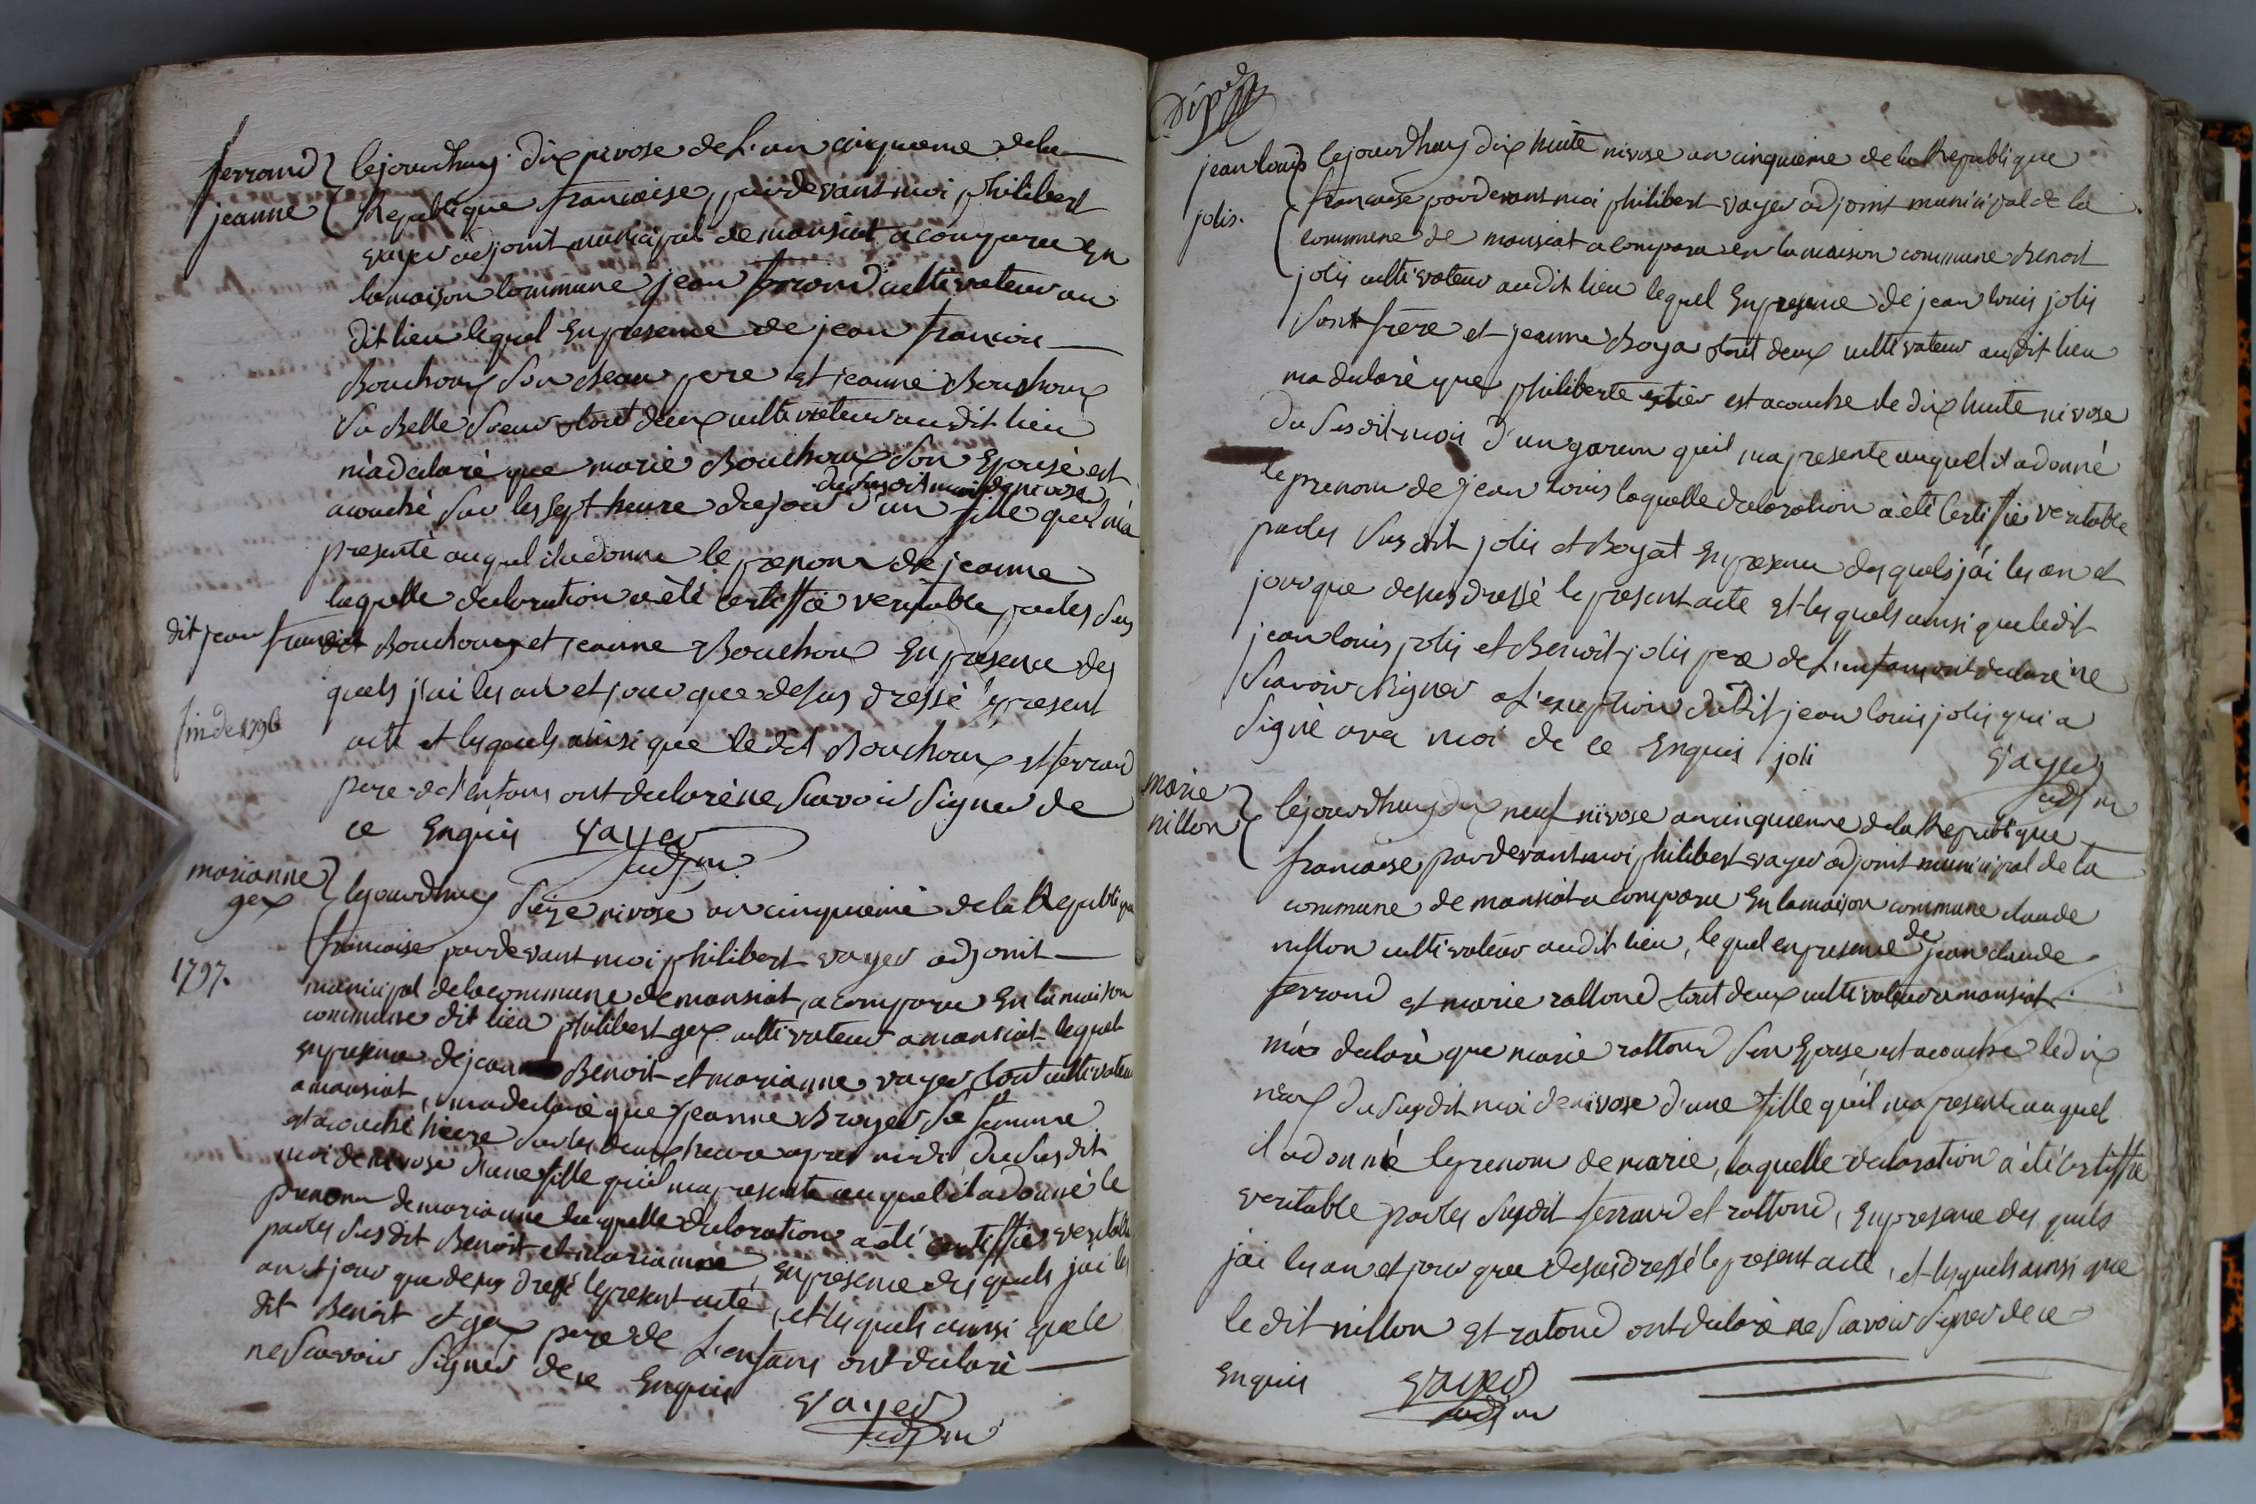 ferrand
jeanne
lejourdhuy dix nivose de L'an cinquieme dela
Republique francaise, pardevant moi philibert
vayer adjoint municipal de mansiat a comparu En
la maison Commune jean ferrand cultivateur au
dit lieu lequel En presence de jean francois
Bouchoux Son Beau pere et jeanne Bouchoux
Sa Belle Soeur tout deux cultivateur au dit lieu
m'a declaré que marie Bouchoux Son Epouse est
du susdit moi de nivose
acouché Sur les Sept heure du jour d'un fille quil m'a
presenté auquel il a donne le prenom de jeanne
laquelle declaration a été Certiffié veritable par les Sus
dit jean francois Bouchoux et jeanne Bouchoux En presence des
quels j'ai les an et jour que desus dressé le present
acte et lesquels ainsi que le dit Bouchoux et ferrand
pere de l'enfans ont declaré ne Scavoir Signer de
ce Enquis vayer
adj m
fin de 1796
marianne
gex
1797.
lejourdhuy Seize nivose an cinquieme de la Republique
francaise pardevant moi philibert vayer adjoint
municipal de la commune de mansiat, a comparu En la maison
commune dit lieu philibert gex cultivateur a mansiat lequel
en presence de jean Benoit et marianne vayer tout cultivateur
a mansiat, m'a declaré que jeanne Broyer Sa femme
est acouché hiere Sur les deux heure apres midi du Susdit
moi de nivose d'une fille quil ma presenté auquel il a donné le
prenom de marianne laquelle declaration a été certiffié veritable
par les Susdit Benoit et marianne, En presence des quels jai les
an et jour que desus dressé le present acte, et les quels ainsi que le
dit Benoit et gex pere de L'enfans ont declaré
ne Scavoir Signer de ce Enquis
vayer
adj m
jean louis
jolis.
lejourdhuy dix huite nivose an cinquieme de la Republique
francaise pardevant moi philibert vayer adjoint municipal de la
commune de mansiat a compara en la maison commune Benoit
jolis cultivateur audit lieu lequel En presence de jean louis jolis
Son frere et jeanne Boya tout deux cultivateur audit lieu
ma declaré que philiberte est acouche le dix huite nivose
du Susdit moi d'un garcon quil ma presente auquel il a donné
le prenom de jean louis laquelle declaration a été Certiffié veritable
par les Sus dit jolis et Boyat En presence des quels j'ai les an et
jour que desus dressé le present acte et les quels ainsi que ledit
jean louis jolis et Benoit jolis pere de L'enfans ont declaré ne
Scavoir Signer a L'exception dudit jean louis jolis qui a
Signé avec moi de ce Enquis joli vayer
adj m
marie
nillon
lejourdhuy dix neuf nivose an cinquieme de la Republique
francaise pardevant moi philibert vayer adjoint municipal de la
commune de mansiat a comparu En la maison commune claude
nillon cultivateur audit lieu, lequel en presence de jean claude
ferrand et marie rattond tout deux cultivateur a mansiat
m'a declaré que marie rattond Son Epouse est acouche le dix
neuf du Susdit moi de nivose d'une fille quil ma presente auquel
il a donné le prenom de marie, laquelle declaration a été Certiffié
veritable par les Susdit ferrand et rattond, En presence des quels
jai les an et jour que desus dressé le present acte, et lesquels ainsi que
le dit nillon et ratond ont declaré ne Scavoir Signer de ce
Enquis vayer
adj m